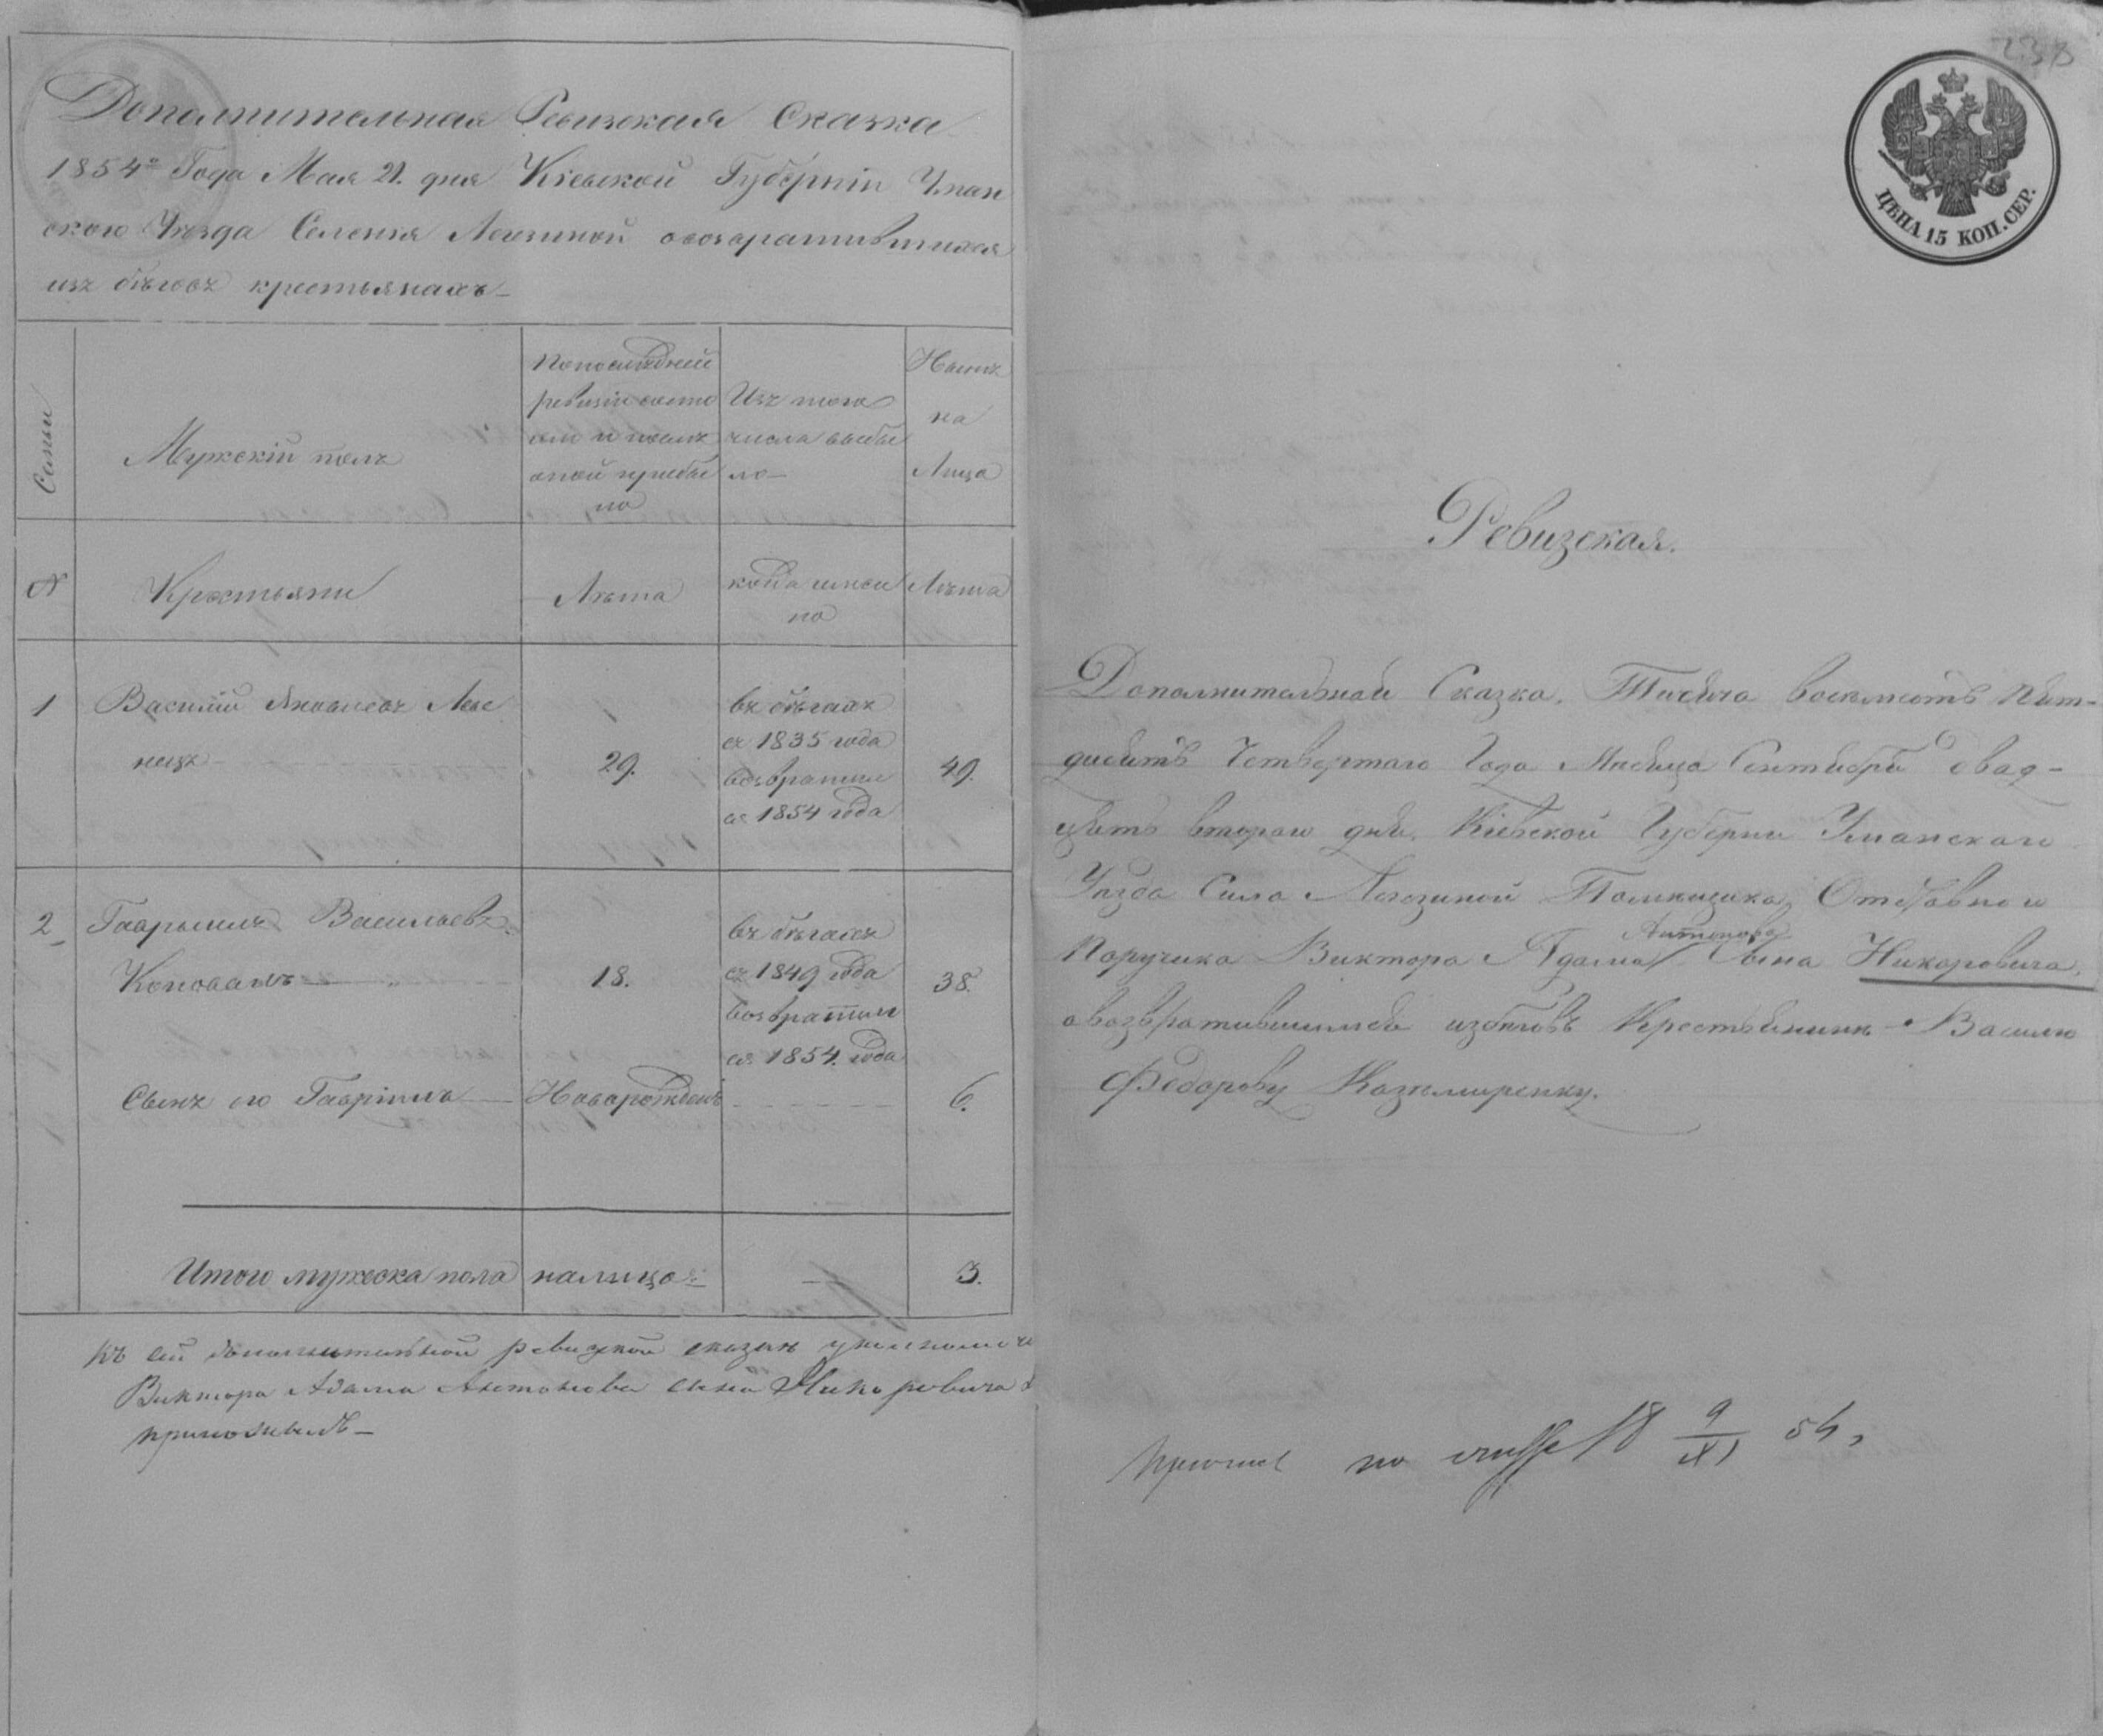 Дополнительная Ревизская Сказка
1854го Года Мая 21. дня Кіевской Губерніи Уман
скаго Уезда Селенія Легезиной о возвратившихся
изъ бѣговъ крестьянахъ
Семьи
Мужскій полъ
По последней
ревизіи состо
яло и послѣ
оной прибы
ло
Изъ того
числа выбы
ло
Ныне
на
Лицо
№
Крестьяни
Лѣта
когда имен
но
Лѣта
1
Василій Яковлевъ
29.
въ бѣгахъ
съ 1835 года
возвратил
ся 1854 года
49.
2
Гаврыилъ Васильевъ
Коновалъ
18.
въ бѣгахъ
съ 1849 года
возвратил
ся 1854. года
38.
Сынъ его Гавріилъ
Новорожденъ
6.
Итого мужеска пола налицо
3.
Къ сей дополнительной ревизской сказке
Виктора Адама Антонова сына Никоровича
приложилъ
238
ЦѢНА 15 КОП. СЕР.
Ревизская.
Дополнительной Сказка. Тисяча восемсотъ пят-
дисятъ Четвертаго Года Мисяца Сентября двад-
цять второго дня. Кіевской Губерни Уманскаго
Уазда Сила Легезиной Помищика Отставного
Антонова
Поручика Виктора Адама Сына Никоровича,
овозвратившимся избиговъ Крестянинк Василю
Федорову Казимиренку.
по 18 9/XI 54,